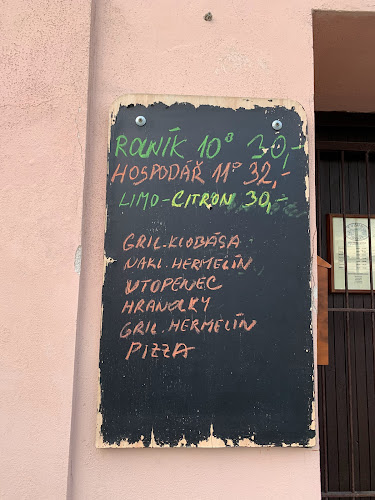 ROLNÍK 10° 30,-
HOSPODÁŘ 11° 32,-
LIMO-CITRON 30,-
GRIL.KLOBÁSA
NAKL.HERMELÍN
UTOPENEC
HRANOLKY
GRIL.HERMELÍN
PIZZA